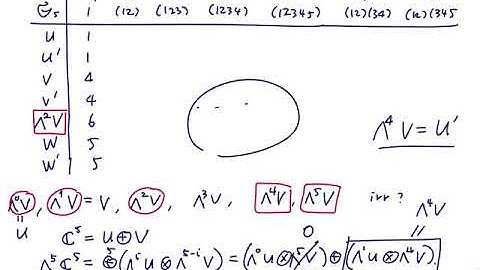 𝔖₅ 1 (12) (123) (1234) (12345) (12)(34) (12)(345
U 1
U' 1
V 4
V' 4
Λ²V 6
W 5
W' 5
Λ⁴V = U'
Λ⁰V, Λ¹V = V, Λ²V, Λ³V, Λ⁴V, Λ⁵V irr? Λ⁴V
= U 0 =
ℂ⁵ = U⊕V
Λ⁵ℂ⁵ = ⊕(ΛⁱU⊗Λ⁵⁻ⁱV) = (Λ⁰U⊗Λ⁵V)⊕(Λ¹U⊗Λ⁴V)